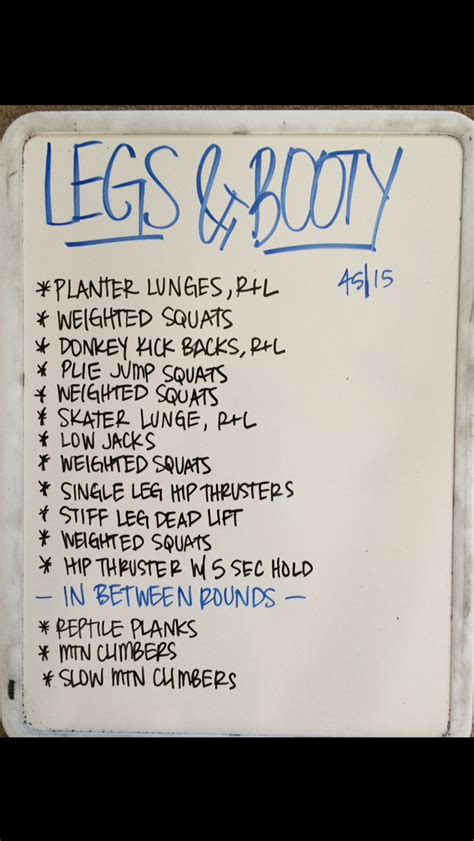 LEGS & BOOTY
45/15
* PLANTER LUNGES, R+L
* WEIGHTED SQUATS
* DONKEY KICK BACKS, R+L
* PLIE JUMP SQUATS
* WEIGHTED SQUATS
* SKATER LUNGE, R+L
* LOW JACKS
* WEIGHTED SQUATS
* SINGLE LEG HIP THRUSTERS
* STIFF LEG DEAD LIFT
* WEIGHTED SQUATS
* HIP THRUSTER W/ 5 SEC HOLD
- IN BETWEEN ROUNDS -
* REPTILE PLANKS
* MTN CLIMBERS
* SLOW MTN CLIMBERS